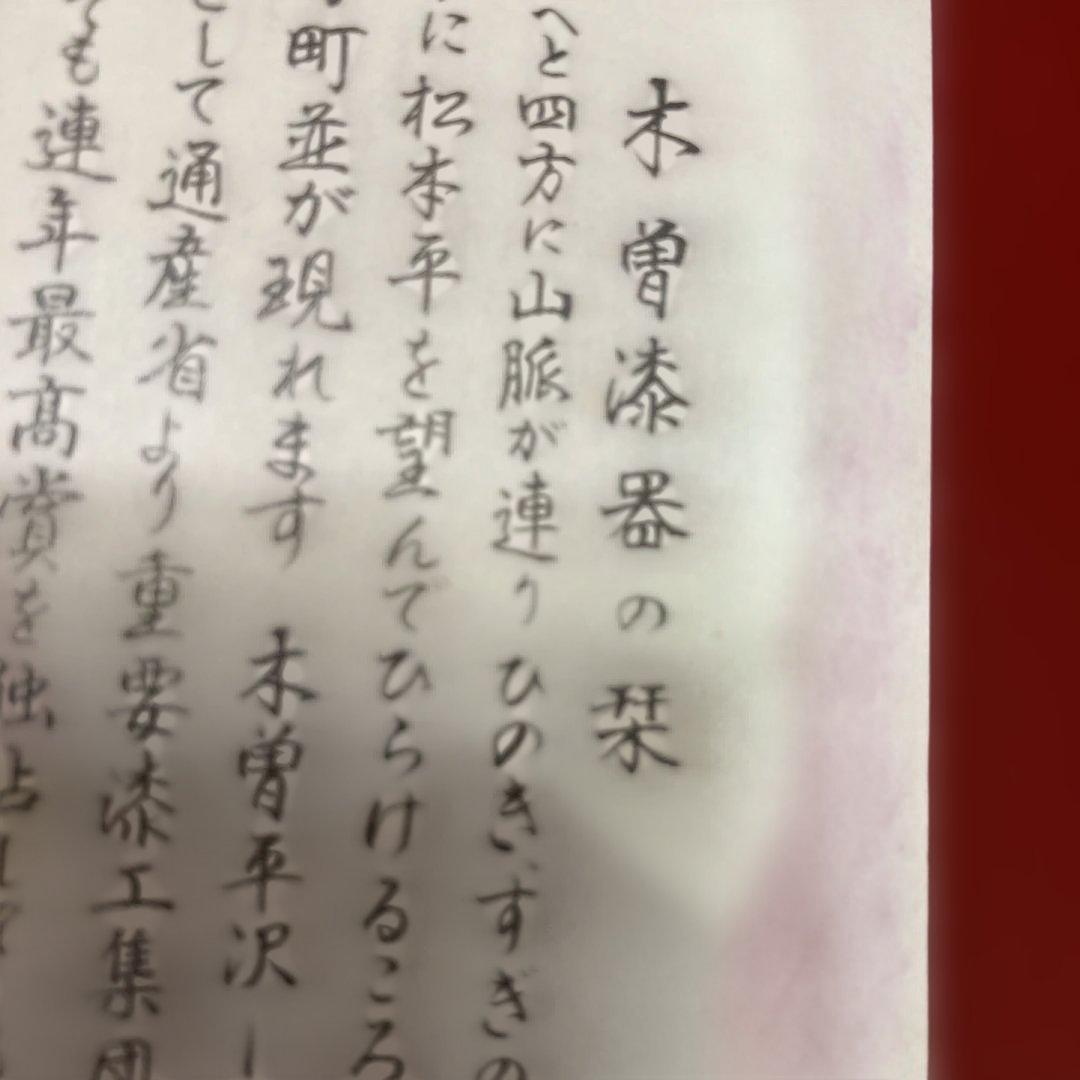 木曽漆器の栞
へと四方に山脈が連り ひのき、すぎの
に松本平を望んでひらけるころ
町並が現れます 木曽平沢
して通産省より重要漆工集団
も連年最高賞を独占